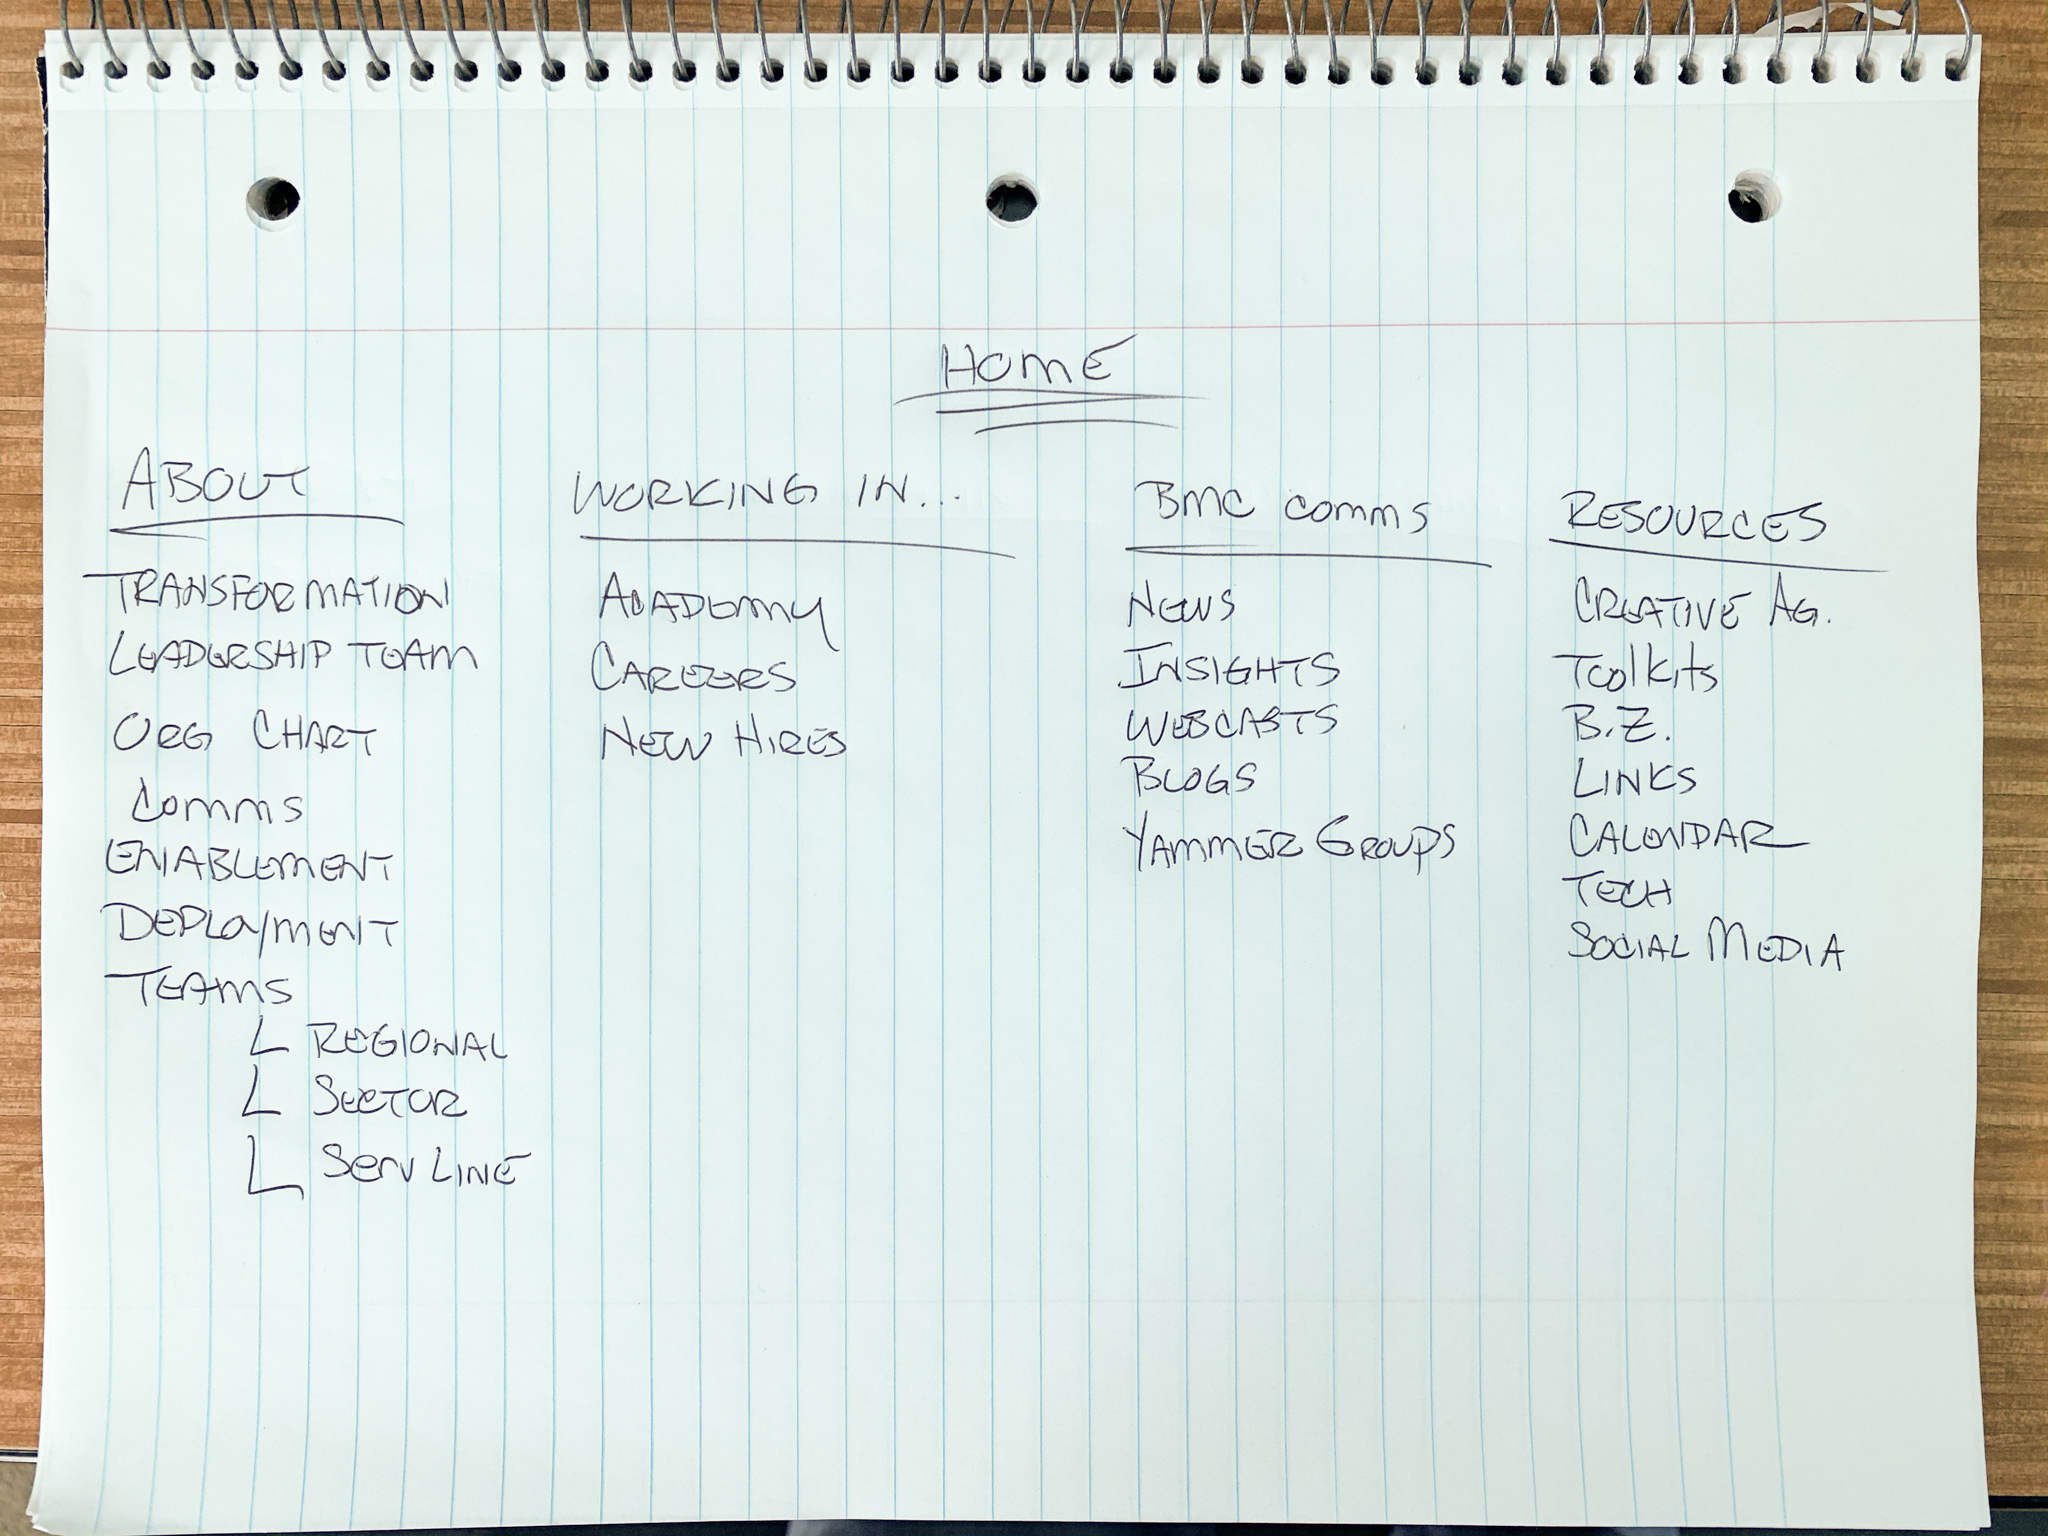 HOME
ABOUT
TRANSFORMATION
LEADERSHIP TEAM
ORG CHART
Comms
ENABLEMENT
DEPLOYMENT
TEAMS
REGIONAL
SECTOR
SERV LINE
WORKING IN...
ACADEMY
CAREERS
NEW HIRES
BMC COMMS
NEWS
INSIGHTS
WEBCASTS
BLOGS
YAMMER GROUPS
RESOURCES
CREATIVE AG.
Toolkits
B.Z.
LINKS
CALENDAR
TECH
SOCIAL MEDIA